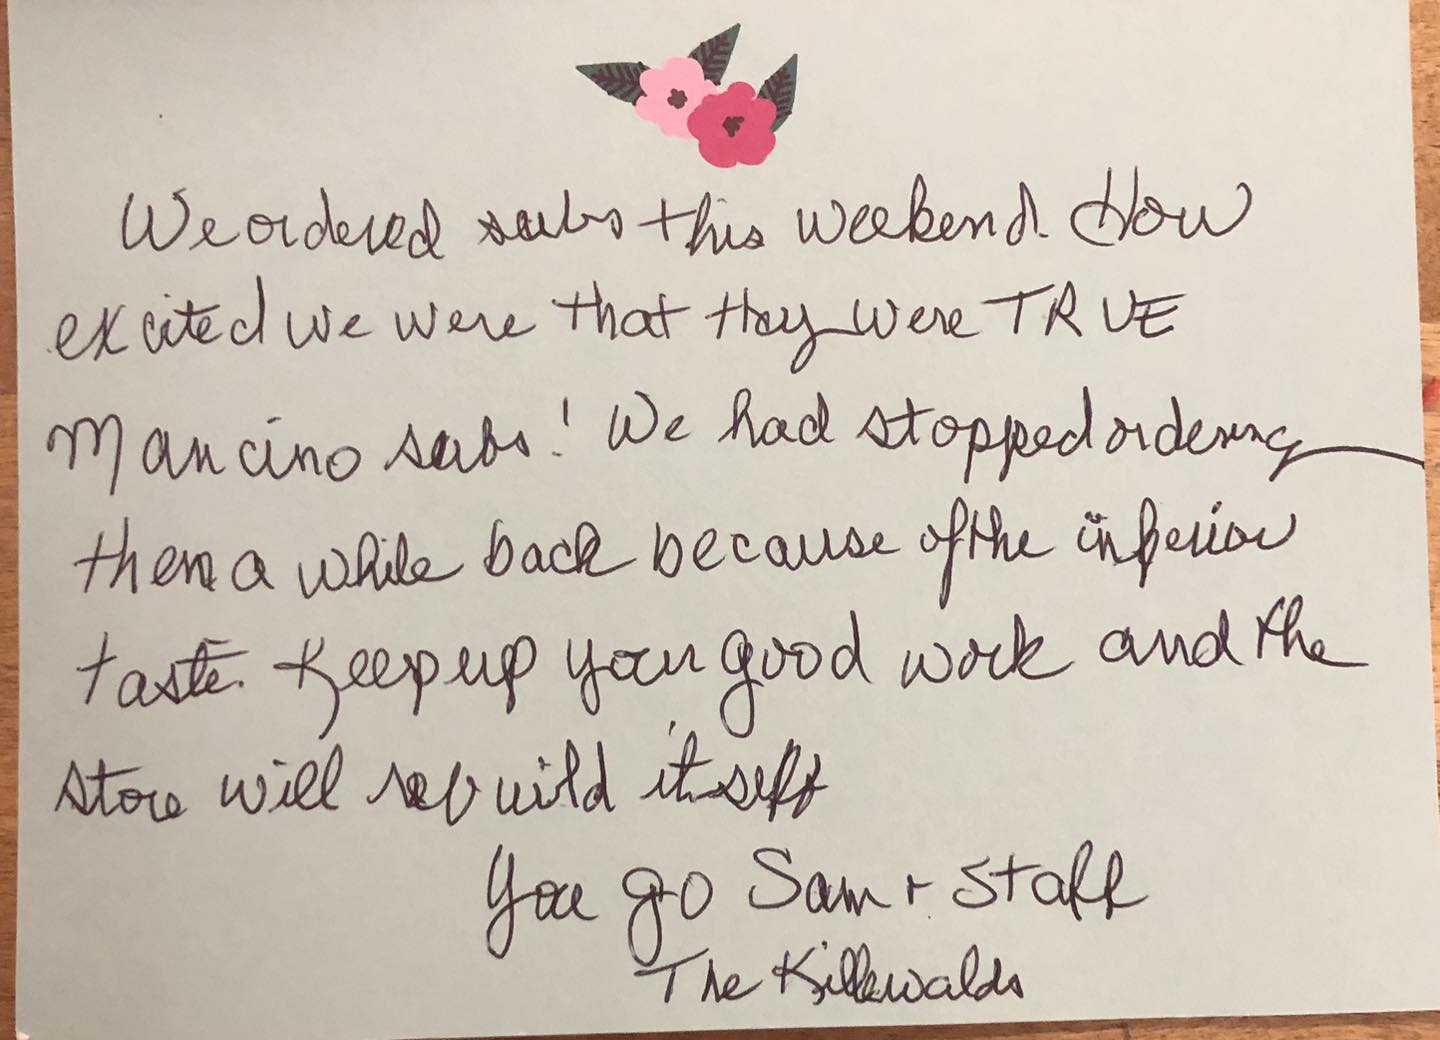 We ordered subs this weekend. How
excited we were that they were TRUE
Mancino subs! We had stopped ordering
them a while back because of the inferior
taste. Keep up your good work and the
store will rebuild itself
You go Sam + Staff
The Killewalds